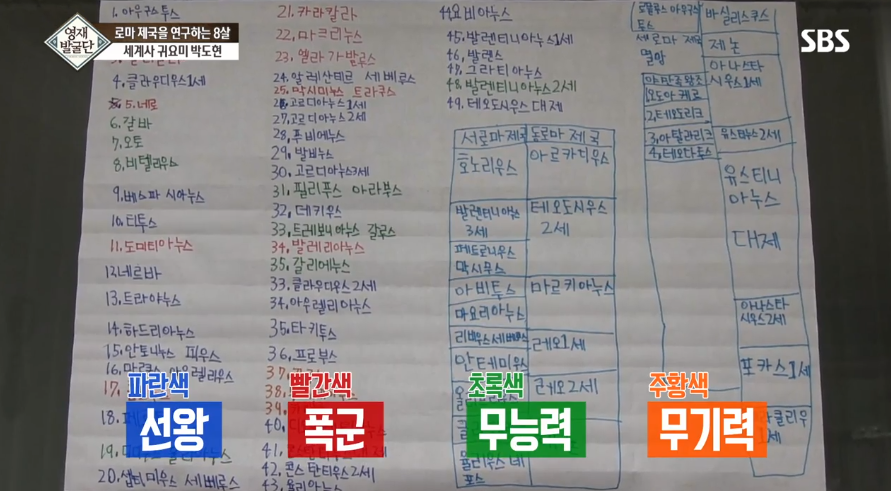 영재
발굴단
로마 제국을 연구하는 8살
세계사 귀요미 박도현
SBS
1. 아우구스투스
4. 클라우디우스1세
5. 네로
6. 갈바
7. 오토
8. 비텔리우스
9. 베스파시아누스
10. 티투스
11. 도미티아누스
12. 네르바
13. 트라야누스
14. 하드리아누스
15. 안토니누스 피우스
16. 마르쿠스 아우렐리우스
17.
18.
19.
20. 셉티미우스 세베루스
21. 카라칼라
22. 마크리누스
23. 엘라가발루스
24. 알렉산데르 세베루스
25. 막시미누스 트라쿠스
26. 고르디아누스1세
27. 고르디아누스2세
28. 푸비에누스
29. 발비누스
30. 고르디아누스3세
31. 필리푸스 아라부스
32. 데키우스
33. 트레보니아누스 갈루스
34. 발레리아누스
35. 갈리에누스
33. 클라우디우스2세
34. 아우렐리아누스
35. 타키투스
36. 프로부스
37.
38.
40.
41.
42. 콘스탄티우스2세
43. 율리아누스
44. 요비아누스
45. 발렌티니아누스1세
46. 발렌스
47. 그라티아누스
48. 발렌티니아누스2세
49. 테오도시우스 대제
서로마제국 동로마 제국
호노리우스 아르카디우스
발렌티니아누스 3세 테오도시우스 2세
페트로니우스 막시무스
아비투스 마르키아누스
마요리아누스
리비우스 세베루스 레오1세
안테미우스
레오2세
로물루스 아우구스투스
서로마 제국 멸망
바실리스쿠스
제논
아나스타시우스1세
오도아케르
2. 테오도리크
3. 아탈라리크
유스티누스2세
유스티니아누스 대제
아나스타시우스2세
포카스1세
파란색
선왕
빨간색
폭군
초록색
무능력
주황색
무기력